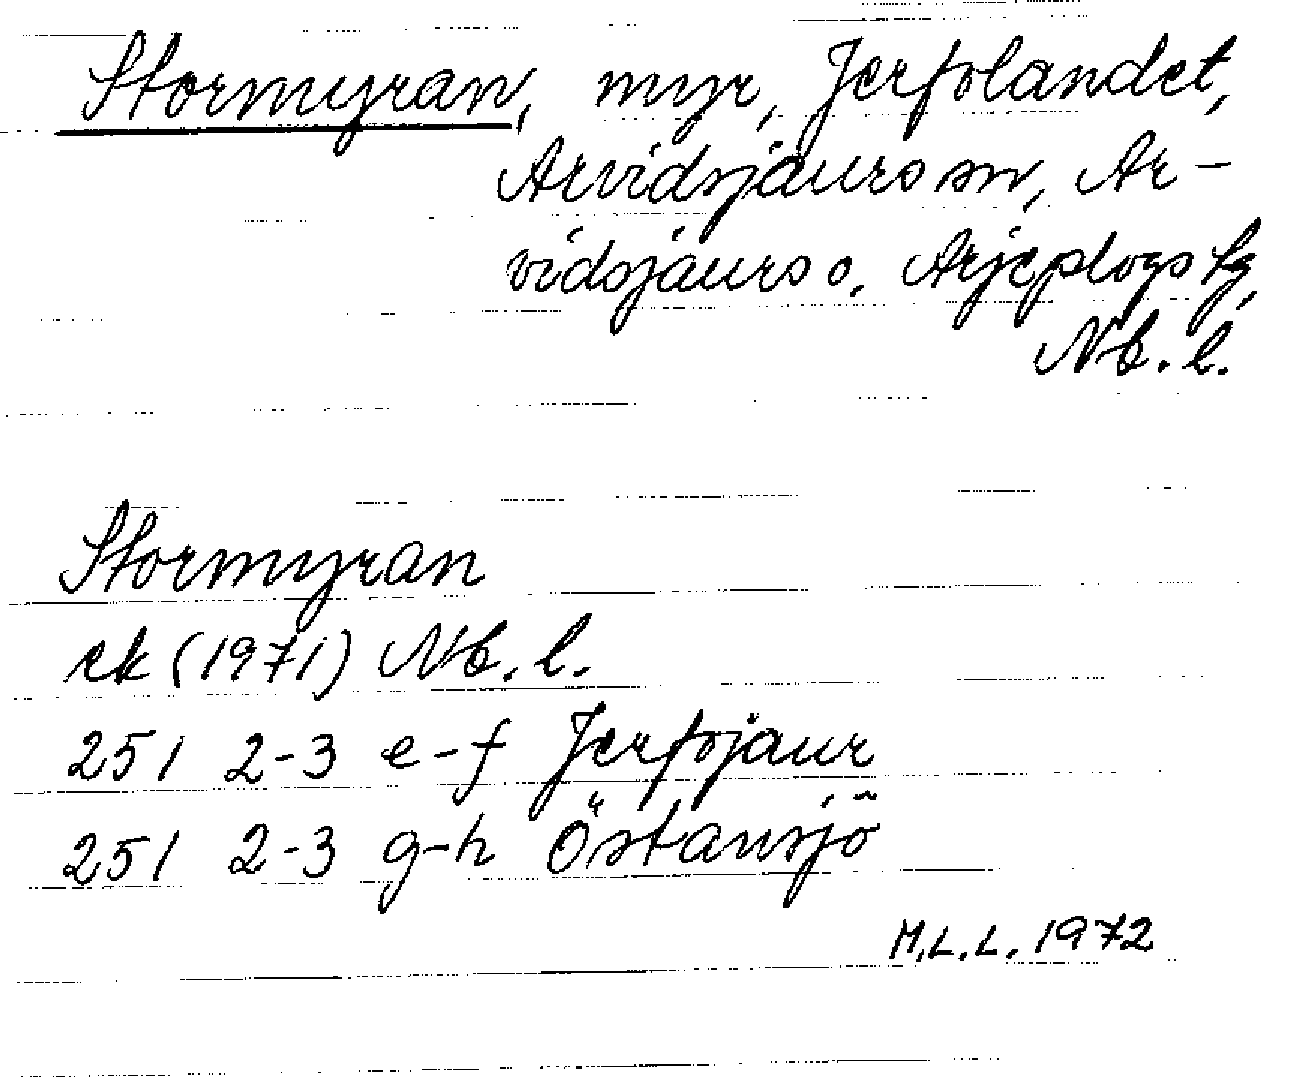 Stormyran, myr, Jerfolandet,
Arvidsjaurs sn, Ar-
vidsjaurs o. Arjeplogs tg,
Nb. l.
Stormyran
ek (1971) Nb. l.
251 2-3 e-f Jerfojaur
251 2-3 g-h Östansjö
M.L.L. 1972